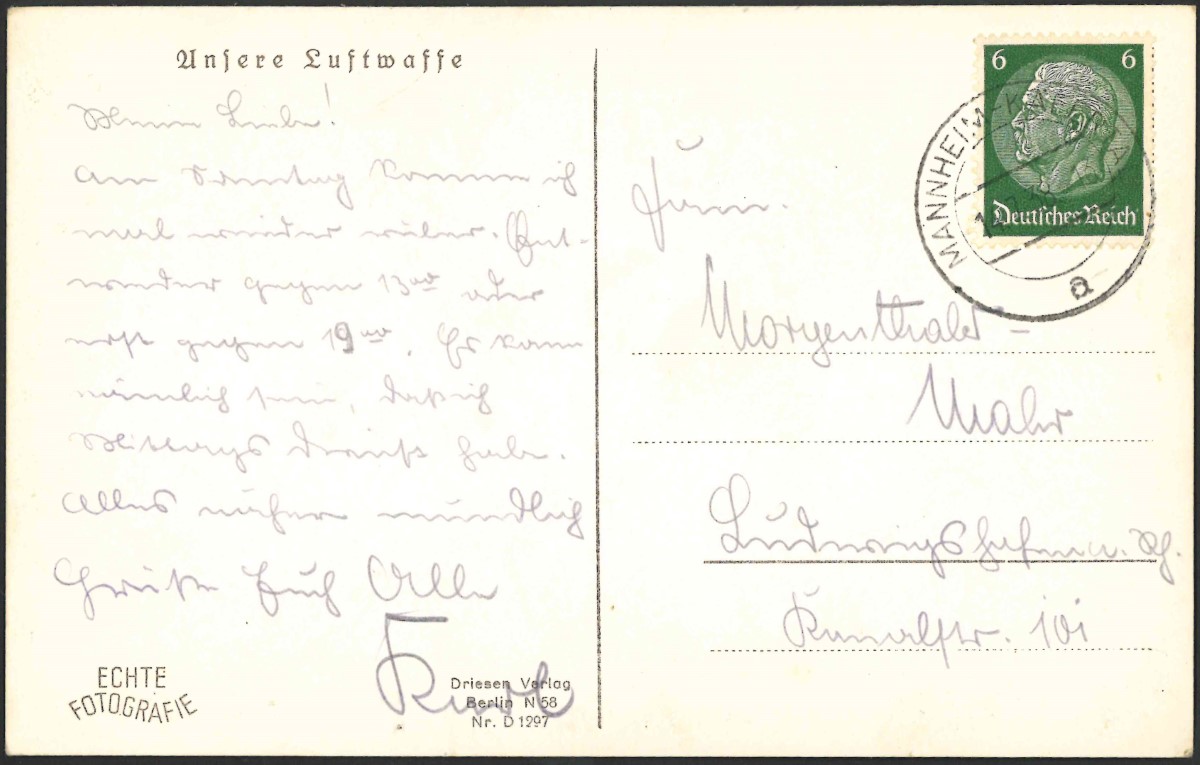 Unsere Luftwaffe
Meine Liebe!
Am Sonntag komme ich
mal wieder rüber. Ent-
weder gegen 13⁰⁰ oder
erst gegen 19⁰⁰. Es kann
nämlich sein, daß ich
Mittags Dienst habe.
Alles näher mündlich
Grüße Euch Alle
Karl
ECHTE
FOTOGRAFIE
Driesen Verlag
Berlin N 58
Nr. D 1297
6 6
Deutsches Reich
MANNHEIM
a
Morgenthaler-
Mahr
Ludwigshafen a. Rh.
Kanalstr. 101